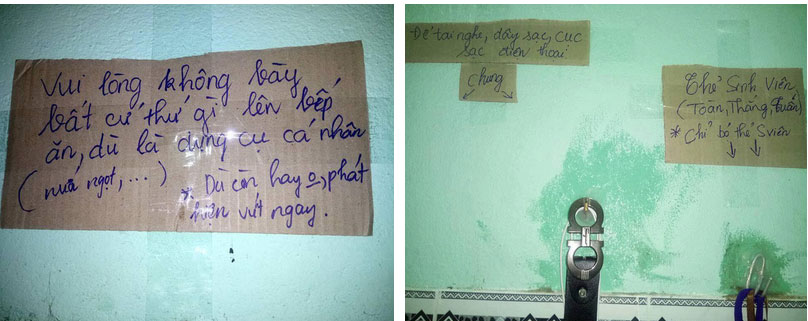 Vui lòng không bày
bất cứ thứ gì lên bếp
ăn, dù là dụng cụ cá nhân
(nước ngọt, ...)
* Dù còn hay o, phát
hiện vứt ngay.
Để tai nghe, dây sạc, cục
sạc điện thoại
Chung
↙ ↘
Thẻ Sinh Viên
(Toàn, Thắng, Tuấn)
* Chỉ bỏ thẻ Sviên
↓ ↓